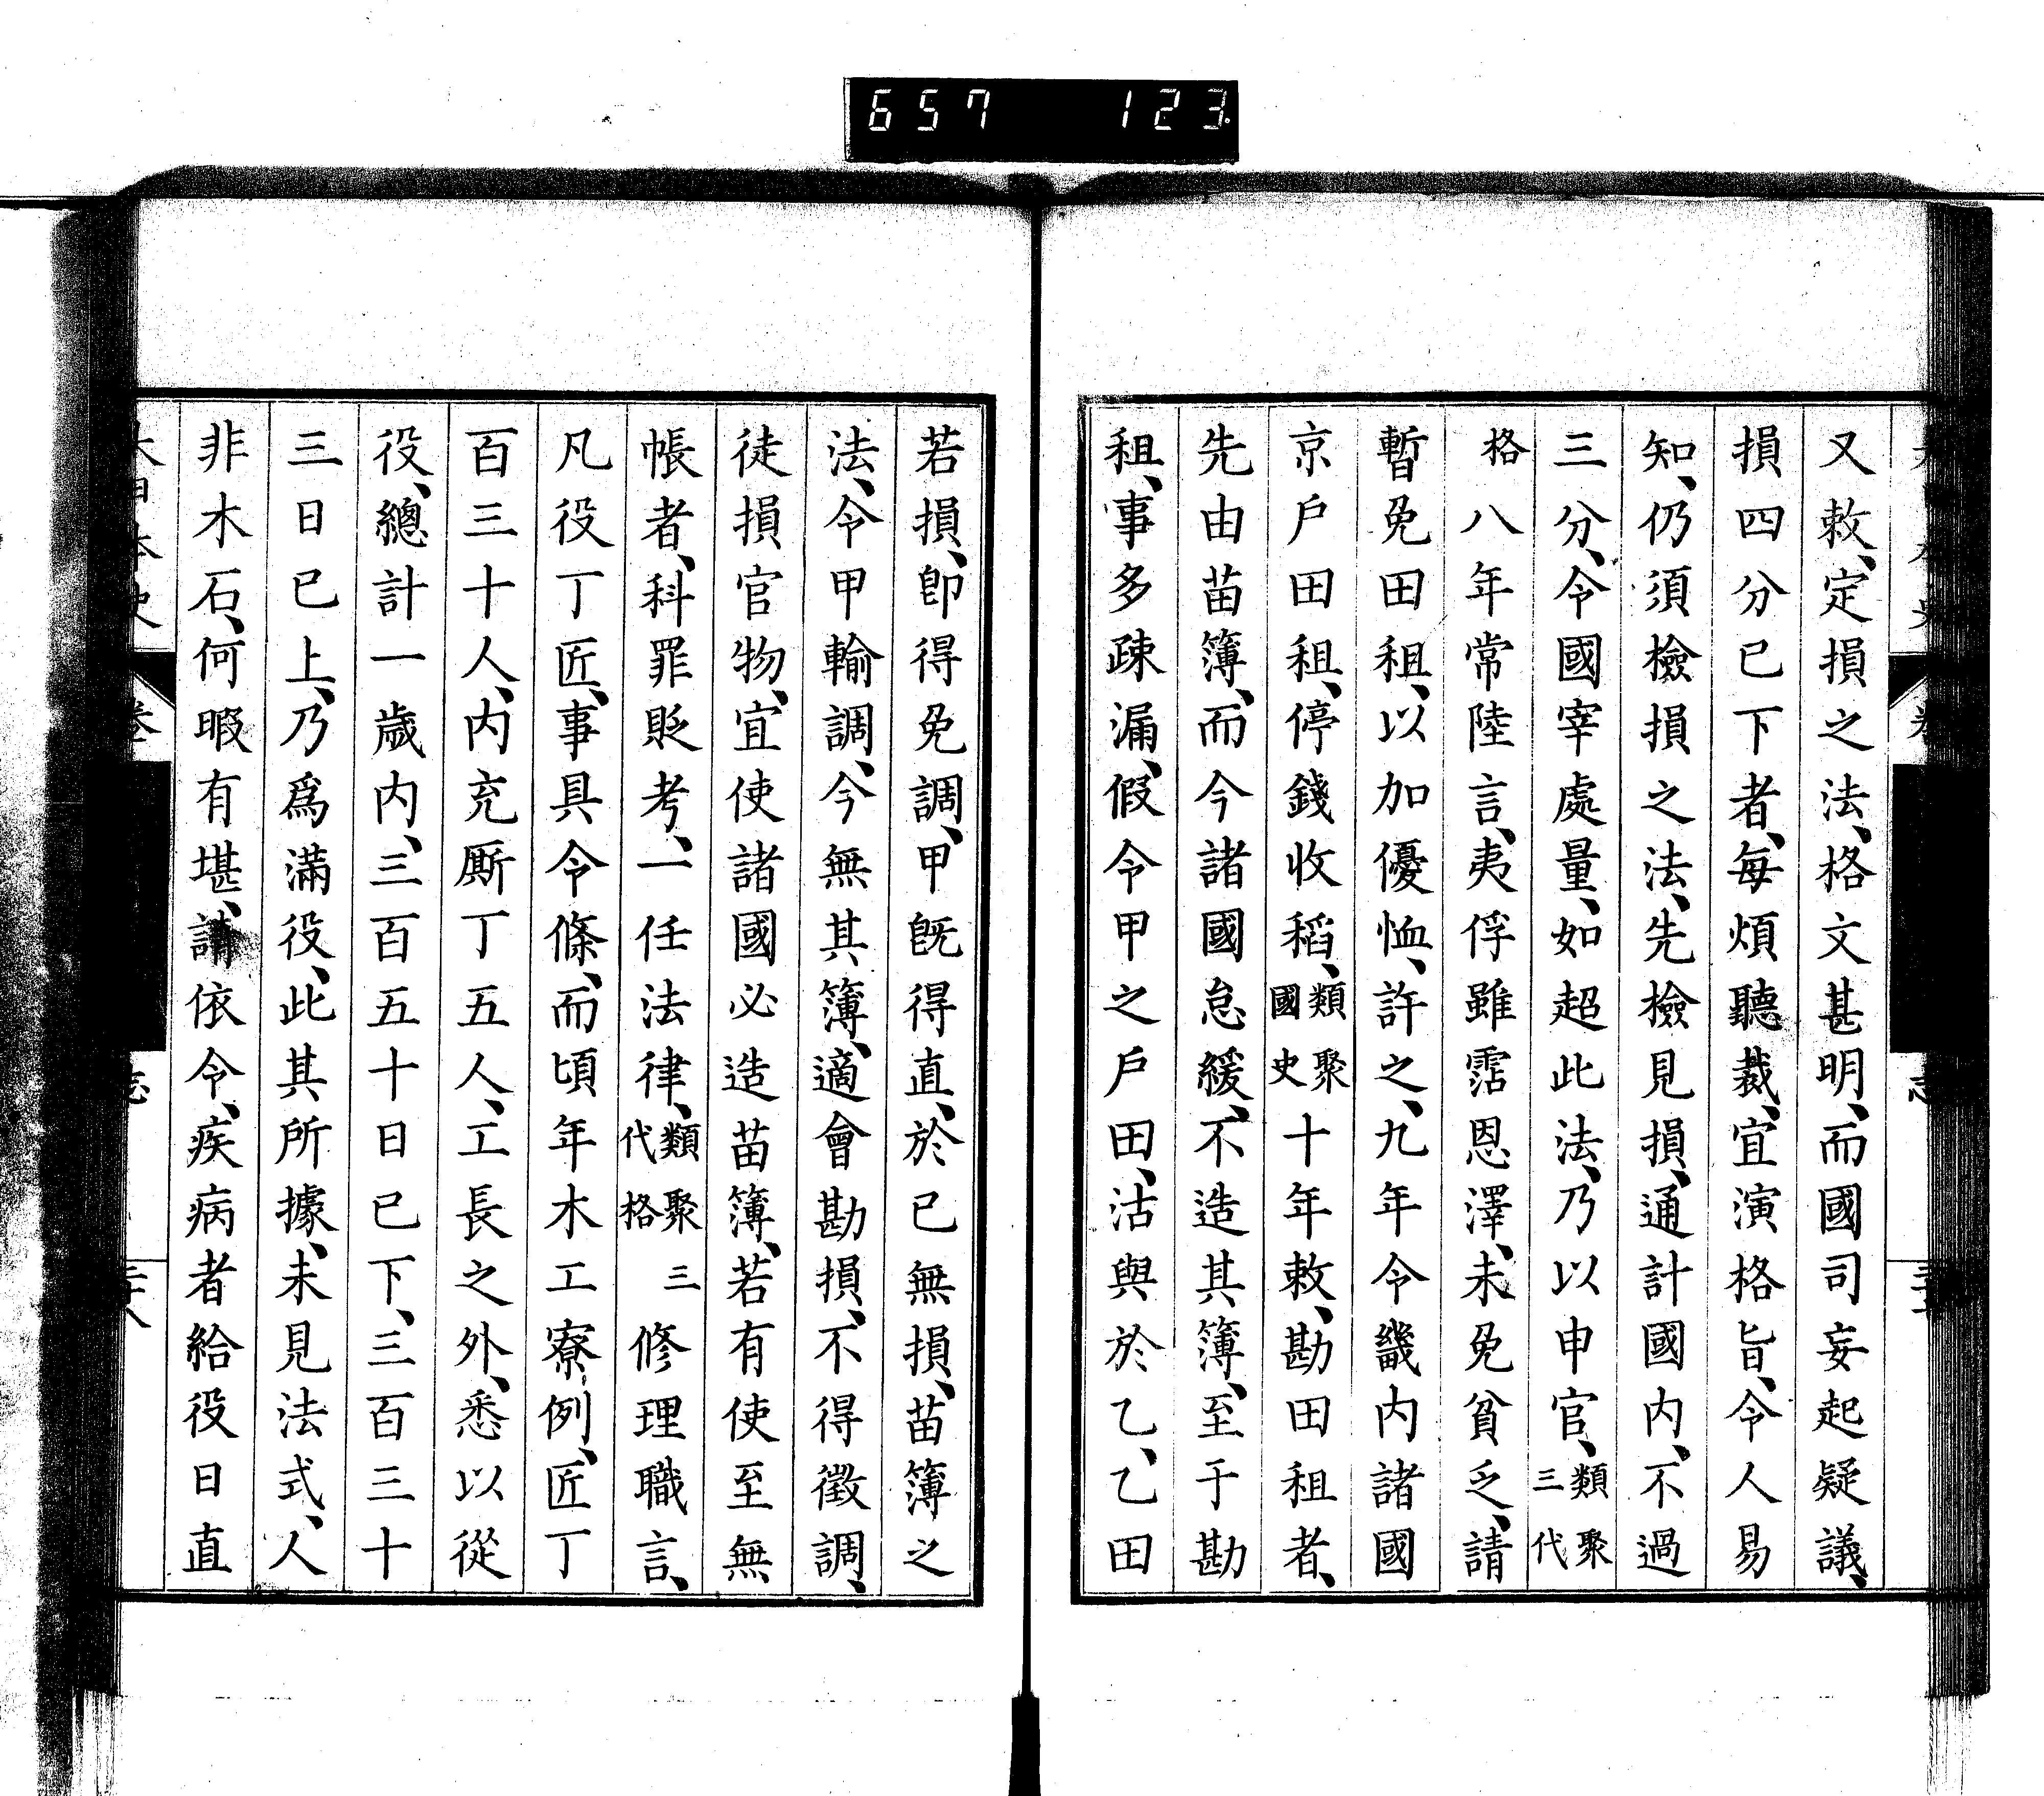 657 123
又敕、定損之法、格文甚明、而國司妄起疑議、
損四分已下者、每煩聽裁、宜演格旨、令人易
知、仍須檢損之法、先檢見損、通計國内、不過
三分、令國宰處量、如超此法、乃以申官、類聚三代
格八年常陸言、夷俘雖霑恩澤、未免貧乏、請
暫免田租、以加優恤、許之、九年令畿内諸國
京戶田租、停錢收稻、類聚國史十年敕、勘田租者、
先由苗簿、而今諸國怠緩、不造其簿、至于勘
租、事多疎漏、假令甲之戶田、沽與於乙、乙田
若損、卽得免調、甲旣得直、於已無損、苗簿之
法、令甲輸調、今無其簿、適會勘損、不得徵調、
徒損官物、宜使諸國必造苗簿、若有使至無
帳者、科罪貶考、一任法律、類聚三代格修理職言、
凡役丁匠、事具令條、而頃年木工寮例、匠丁
百三十人、内充厮丁五人、工長之外、悉以從
役、總計一歲内、三百五十日已下、三百三十
三日已上、乃爲滿役、此其所據、未見法式、人
非木石、何暇有堪、請依令、疾病者給役日直